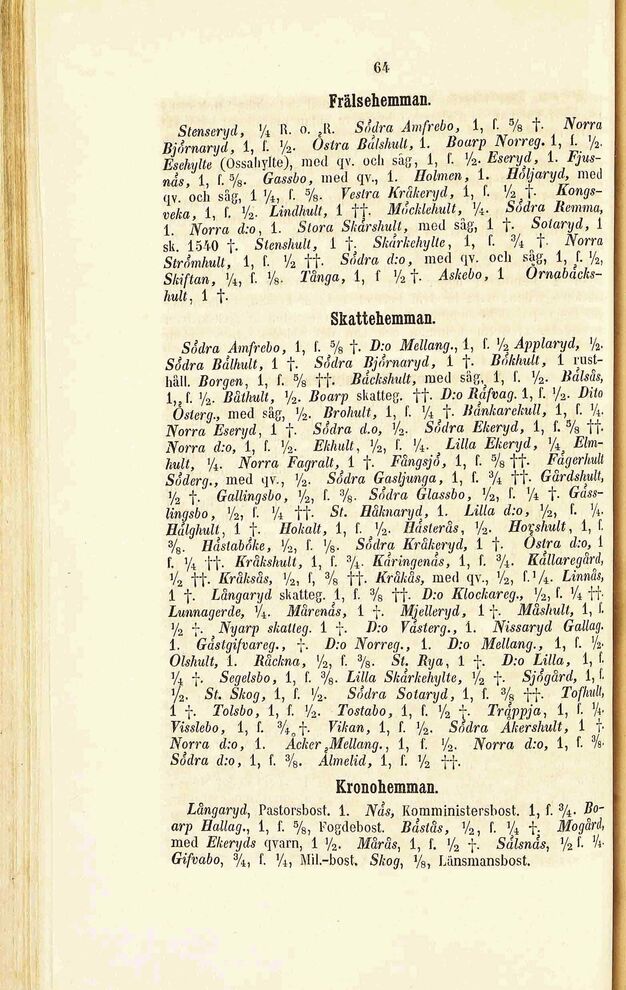 64
Frälsehemman.
Stenseryd, ¼ R. o. R. Södra Amfrebo, 1, f. ⅝ †. Norra
Björnaryd, 1, f. ½. Östra Bålshult, 1. Boarp Norreg. 1, f. ½.
Esehylte (Ossahylte), med qv. och såg, 1, f. ½. Eseryd, 1. Fjus-
nås, 1, f. ⅝. Gassbo, med qv., 1. Holmen, 1. Höljaryd, med
qv. och såg, 1 ¼, f. ⅝. Vestra Kråkeryd, 1, f. ½ †. Kongs-
veka, 1, f. ½. Lindhult, 1 ††. Möcklehult, ¼. Södra Remma,
1. Norra d:o, 1. Stora Skårshult, med såg, 1 †. Sotaryd, 1
sk. 1540 †. Stenshult, 1 †. Skårkehylte, 1, f. ¾ †. Norra
Strömhult, 1, f. ½ ††. Södra d:o, med qv. och såg, 1, f. ½,
Skiftan, ¼, f. ⅛. Tånga, 1, f ½ †. Askebo, 1 Örnabäcks-
hult, 1 †.
Skattehemman.
Södra Amfrebo, 1, f. ⅝ †. D:o Mellang., 1, f. ½ Applaryd, ½.
Södra Bålhult, 1 †. Södra Björnaryd, 1 †. Bökhult, 1 rust-
håll. Borgen, 1, f. ⅝ ††. Bäckshult, med såg, 1, f. ½. Bålsås,
1, f. ½. Båthult, ½. Boarp skatteg. ††. D:o Råfvag. 1, f. ½. Dito
Österg., med såg, ½. Brohult, 1, f. ¼ †. Bånkarekull, 1, f. ¼.
Norra Eseryd, 1 †. Södra d.o, ½. Södra Ekeryd, 1, f. ⅝ ††.
Norra d:o, 1, f. ½. Ekhult, ½, f. ¼. Lilla Ekeryd, ¼ Elm-
hult, ¼. Norra Fagralt, 1 †. Fångsjö, 1, f. ⅝ ††. Fägerhult
Söderg., med qv., ½. Södra Gasljunga, 1, f. ¾ ††. Gårdshult,
½ †. Gallingsbo, ½, f. ⅜. Södra Glassbo, ½, f. ¼ †. Gåss-
lingsbo, ½, f. ¼ ††. St. Håknaryd, 1. Lilla d:o, ½, f. ¼.
Hålghult, 1 †. Hokalt, 1, f. ½. Håsterås, ½. Horshult, 1, f.
⅜. Håstaböke, ½, f. ⅛. Södra Kråkeryd, 1 †. Östra d:o, 1
f. ¼ ††. Kråkshult, 1, f. ¾. Kåringenås, 1, f. ¾. Kållaregård,
½ ††. Kråksås, ½, f, ⅜ ††. Kråkås, med qv., ½, f. ¼. Linnås,
1 †. Långaryd skatteg. 1, f. ⅜ ††. D:o Klockareg., ½, f. ¼ ††.
Lunnagerde, ¼. Mårenås, 1 †. Mjelleryd, 1 †. Måshult, 1, f.
½ †. Nyarp skatteg. 1 †. D:o Våsterg., 1. Nissaryd Gallag.
1. Gåstgifvareg., †. D:o Norreg., 1. D:o Mellang., 1, f. ½.
Olshult, 1. Råckna, ½, f. ⅜. St. Rya, 1 †. D:o Lilla, 1, f.
¼ †. Segelsbo, 1, f. ⅜. Lilla Skårkehylte, ½ †. Sjögård, 1, f.
½. St. Skog, 1, f. ½. Södra Sotaryd, 1, f. ⅜ ††. Tofhult,
1 †. Tolsbo, 1, f. ½. Tostabo, 1, f. ½ †. Tråppja, 1, f. ¼.
Visslebo, 1, f. ¾ †. Vikan, 1, f. ½. Södra Åkershult, 1 †.
Norra d:o, 1. Åcker Mellang., 1, f. ½. Norra d:o, 1, f. ⅜.
Södra d:o, 1, f. ⅜. Ålmelid, 1, f. ½ ††.
Kronohemman.
Långaryd, Pastorsbost. 1. Nås, Komministersbost. 1, f. ¾. Bo-
arp Hallag., 1, f. ⅝, Fogdebost. Båstås, ½, f. ¼ †. Mogård,
med Ekeryds qvarn, 1 ½. Mårås, 1, f. ½ †. Sålsnås, ½ f. ¼.
Gifvabo, ¾, f. ¼, Mil.-bost. Skog, ⅛, Länsmansbost.